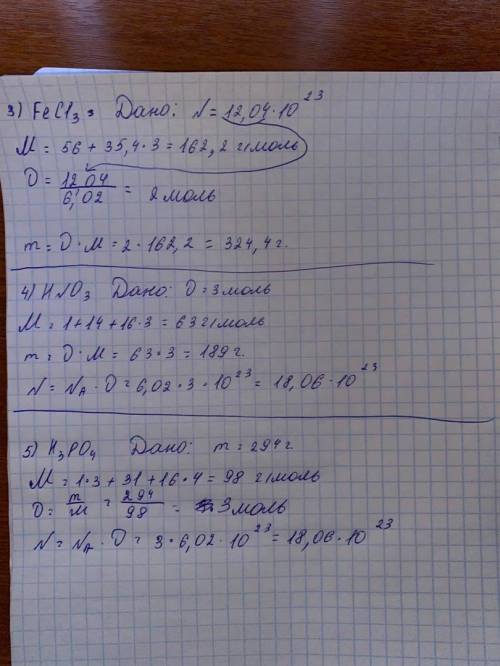 3) FeCl₃ Дано: N = 12,04·10²³
M = 56 + 35,4·3 = 162,2 г/моль
υ = 12,04/6,02 = 2 моль
m = υ·M = 2·162,2 = 324,4 г.
4) HNO₃ Дано: υ = 3 моль
M = 1+14+16·3 = 63 г/моль
m = υ·M = 63·3 = 189 г.
N = Nₐ·υ = 6,02·3·10²³ = 18,06·10²³
5) H₃PO₄ Дано: m = 294 г
M = 1·3 + 31 + 16·4 = 98 г/моль
υ = m/M = 294/98 = 3 моль
N = Nₐ·υ = 3·6,02·10²³ = 18,06·10²³